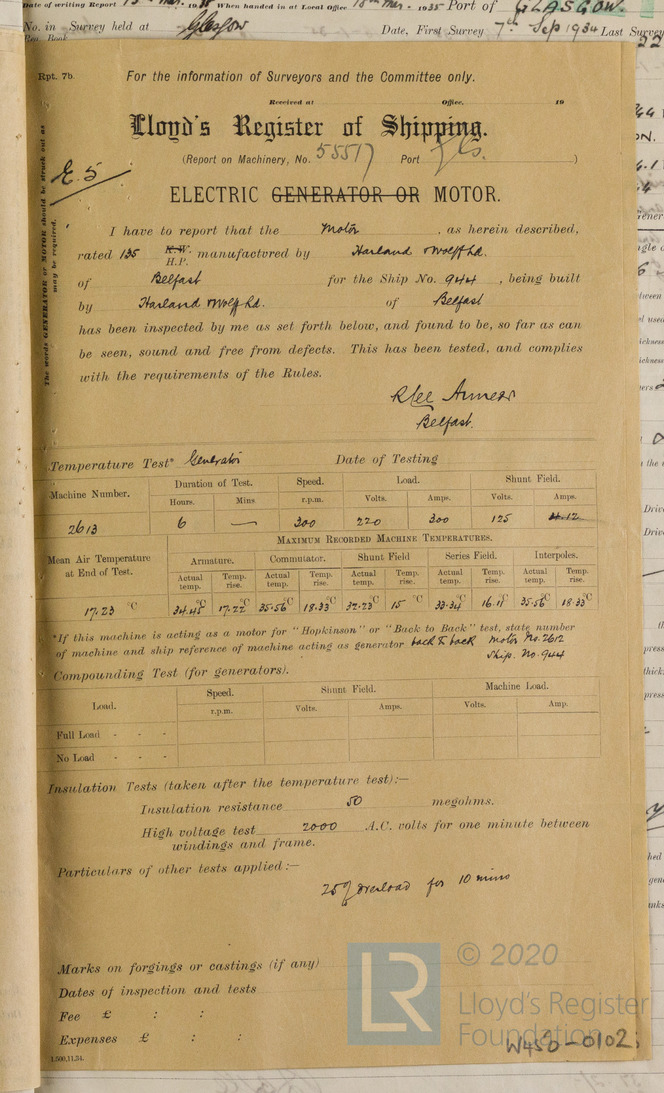 Date of writing Report 19 When handed in at Local Office 1935 Port of GLASGOW
No. in Survey held at Glasgow Date, First Survey 7th Sep 1934 Last Survey
Reg. Book
22
Rpt. 7b.
For the information of Surveyors and the Committee only.
Received at Office, 19
Lloyd's Register of Shipping.
(Report on Machinery, No. 55517 Port Gls. )
E.5
The words GENERATOR or MOTOR should be struck out as may be required.
ELECTRIC GENERATOR OR MOTOR.
I have to report that the Motor , as herein described,
rated 135 K.W. H.P. manufactured by Harland & Wolff Ltd.
of Belfast for the Ship No. 944 , being built
by Harland & Wolff Ltd. of Belfast
has been inspected by me as set forth below, and found to be, so far as can
be seen, sound and free from defects. This has been tested, and complies
with the requirements of the Rules.
Belfast.
Temperature Test* Generator Date of Testing
Machine Number. Duration of Test. Speed. Load. Shunt Field.
Hours. Mins. r.p.m. Volts. Amps. Volts. Amps.
2613 6 — 300 220 300 125
MAXIMUM RECORDED MACHINE TEMPERATURES.
Mean Air Temperature at End of Test. Armature. Commutator. Shunt Field Series Field. Interpoles.
Actual temp. Temp. rise. Actual temp. Temp. rise. Actual temp. Temp. rise. Actual temp. Temp. rise. Actual temp. Temp. rise.
17.23 °C 34.45 °C 17.22 °C 35.56 °C 18.33 °C 32.23 °C 15 °C 33.34 °C 16.11 °C 35.56 °C 18.33 °C
*If this machine is acting as a motor for "Hopkinson" or "Back to Back" test, state number
of machine and ship reference of machine acting as generator back to back Motor No. 2612
Ship. No. 944
Compounding Test (for generators).
Load. Speed. Shunt Field. Machine Load.
r.p.m. Volts. Amps. Volts. Amp.
Full Load - - -
No Load - - -
Insulation Tests (taken after the temperature test):—
Insulation resistance 50 megohms.
High voltage test 2000 A.C. volts for one minute between
windings and frame.
Particulars of other tests applied :—
25% overload for 10 mins
Marks on forgings or castings (if any)
Dates of inspection and tests
Fee £ : :
Expenses £ : :
1,500,11,34.
LR
© 2020
Lloyd's Register
Foundation
W450-0102